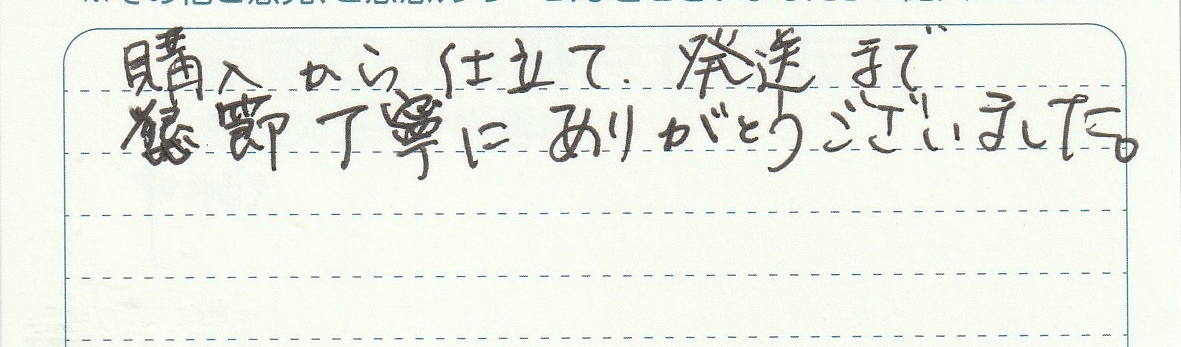 購入から仕立て.発送まで
懇節丁寧にありがとうございました。